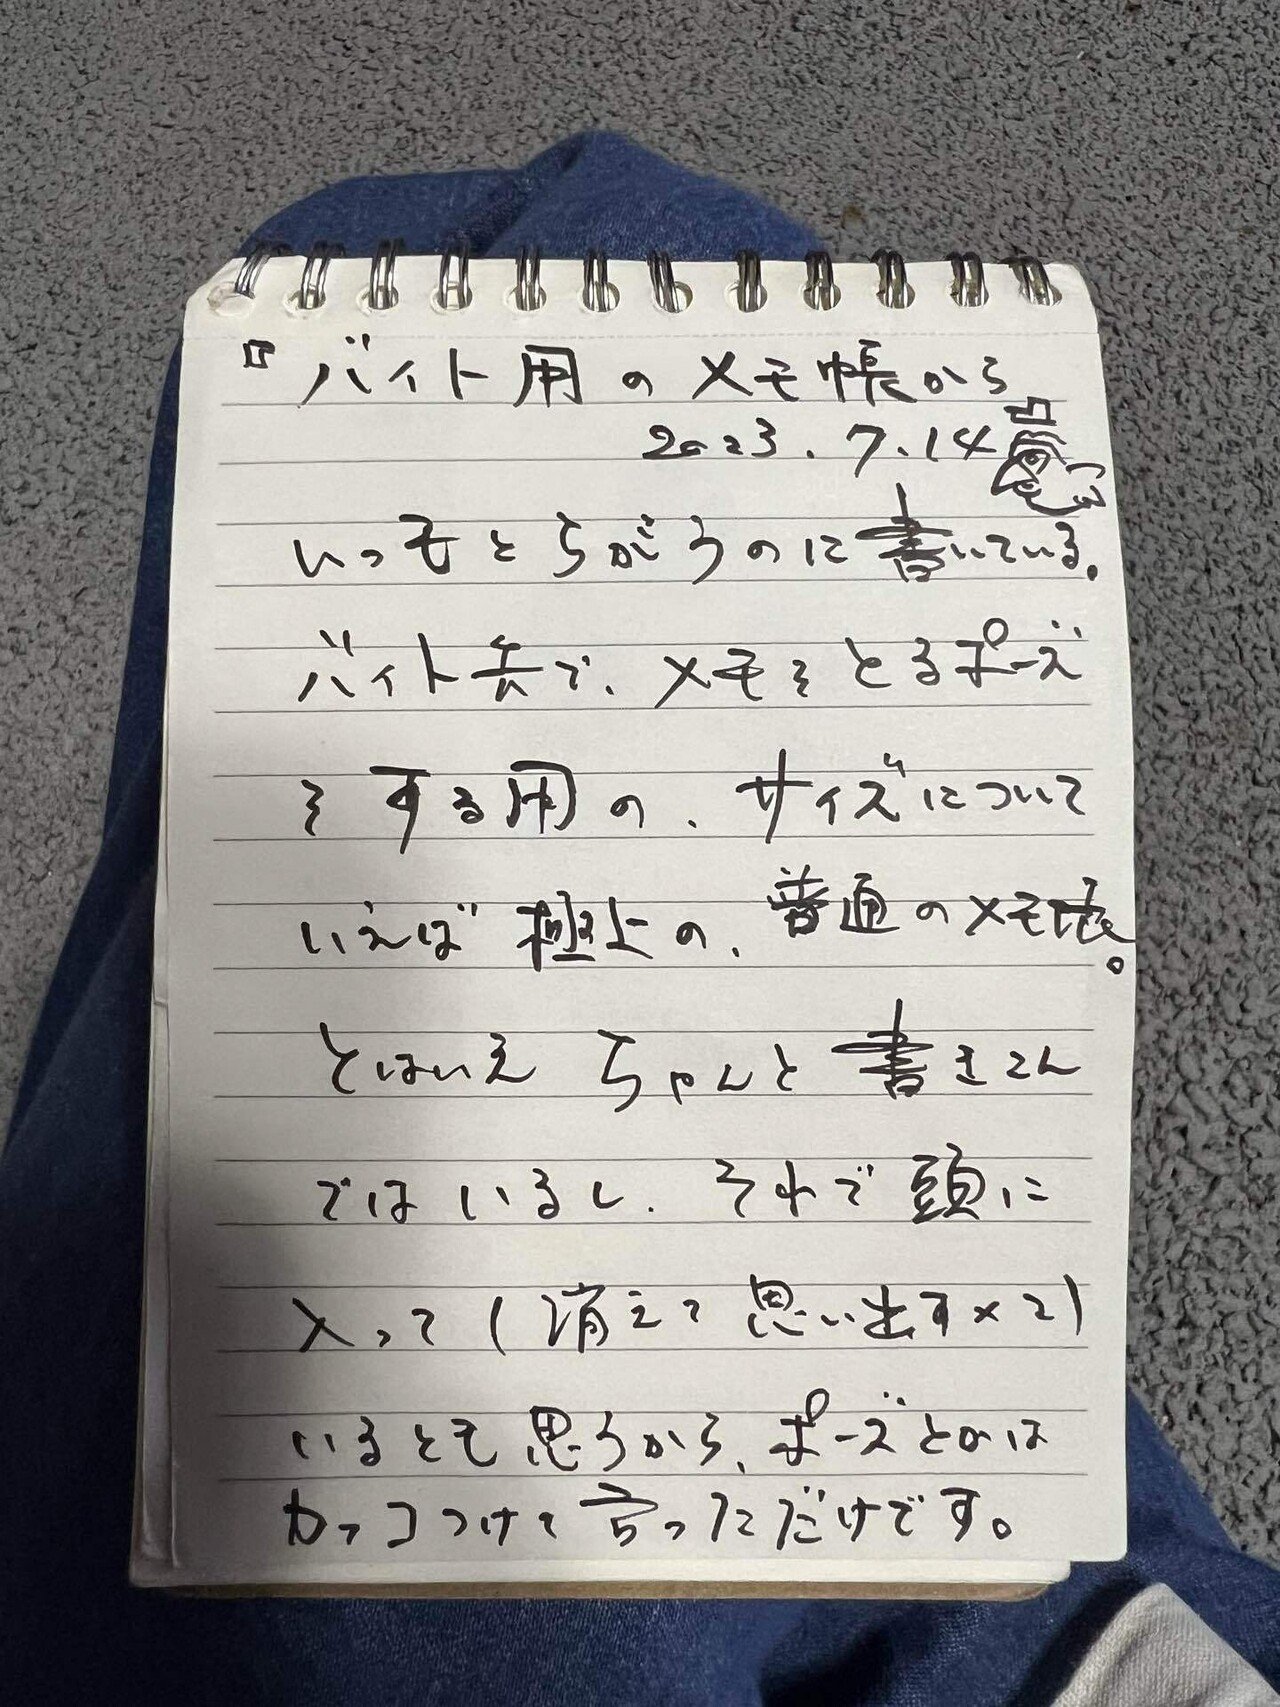 『バイト用のメモ帳から
2023.7.14
いつもとちがうのに書いている。
バイト先で、メモをとるポーズ
をする用の、サイズについて
いえば極上の、普通のメモ帳。
とはいえ ちゃんと書きこん
ではいるし、それで頭に
入って(消えて思い出す×2)
いるとも思うから、ポーズとかは
カッコつけて言っただけです。